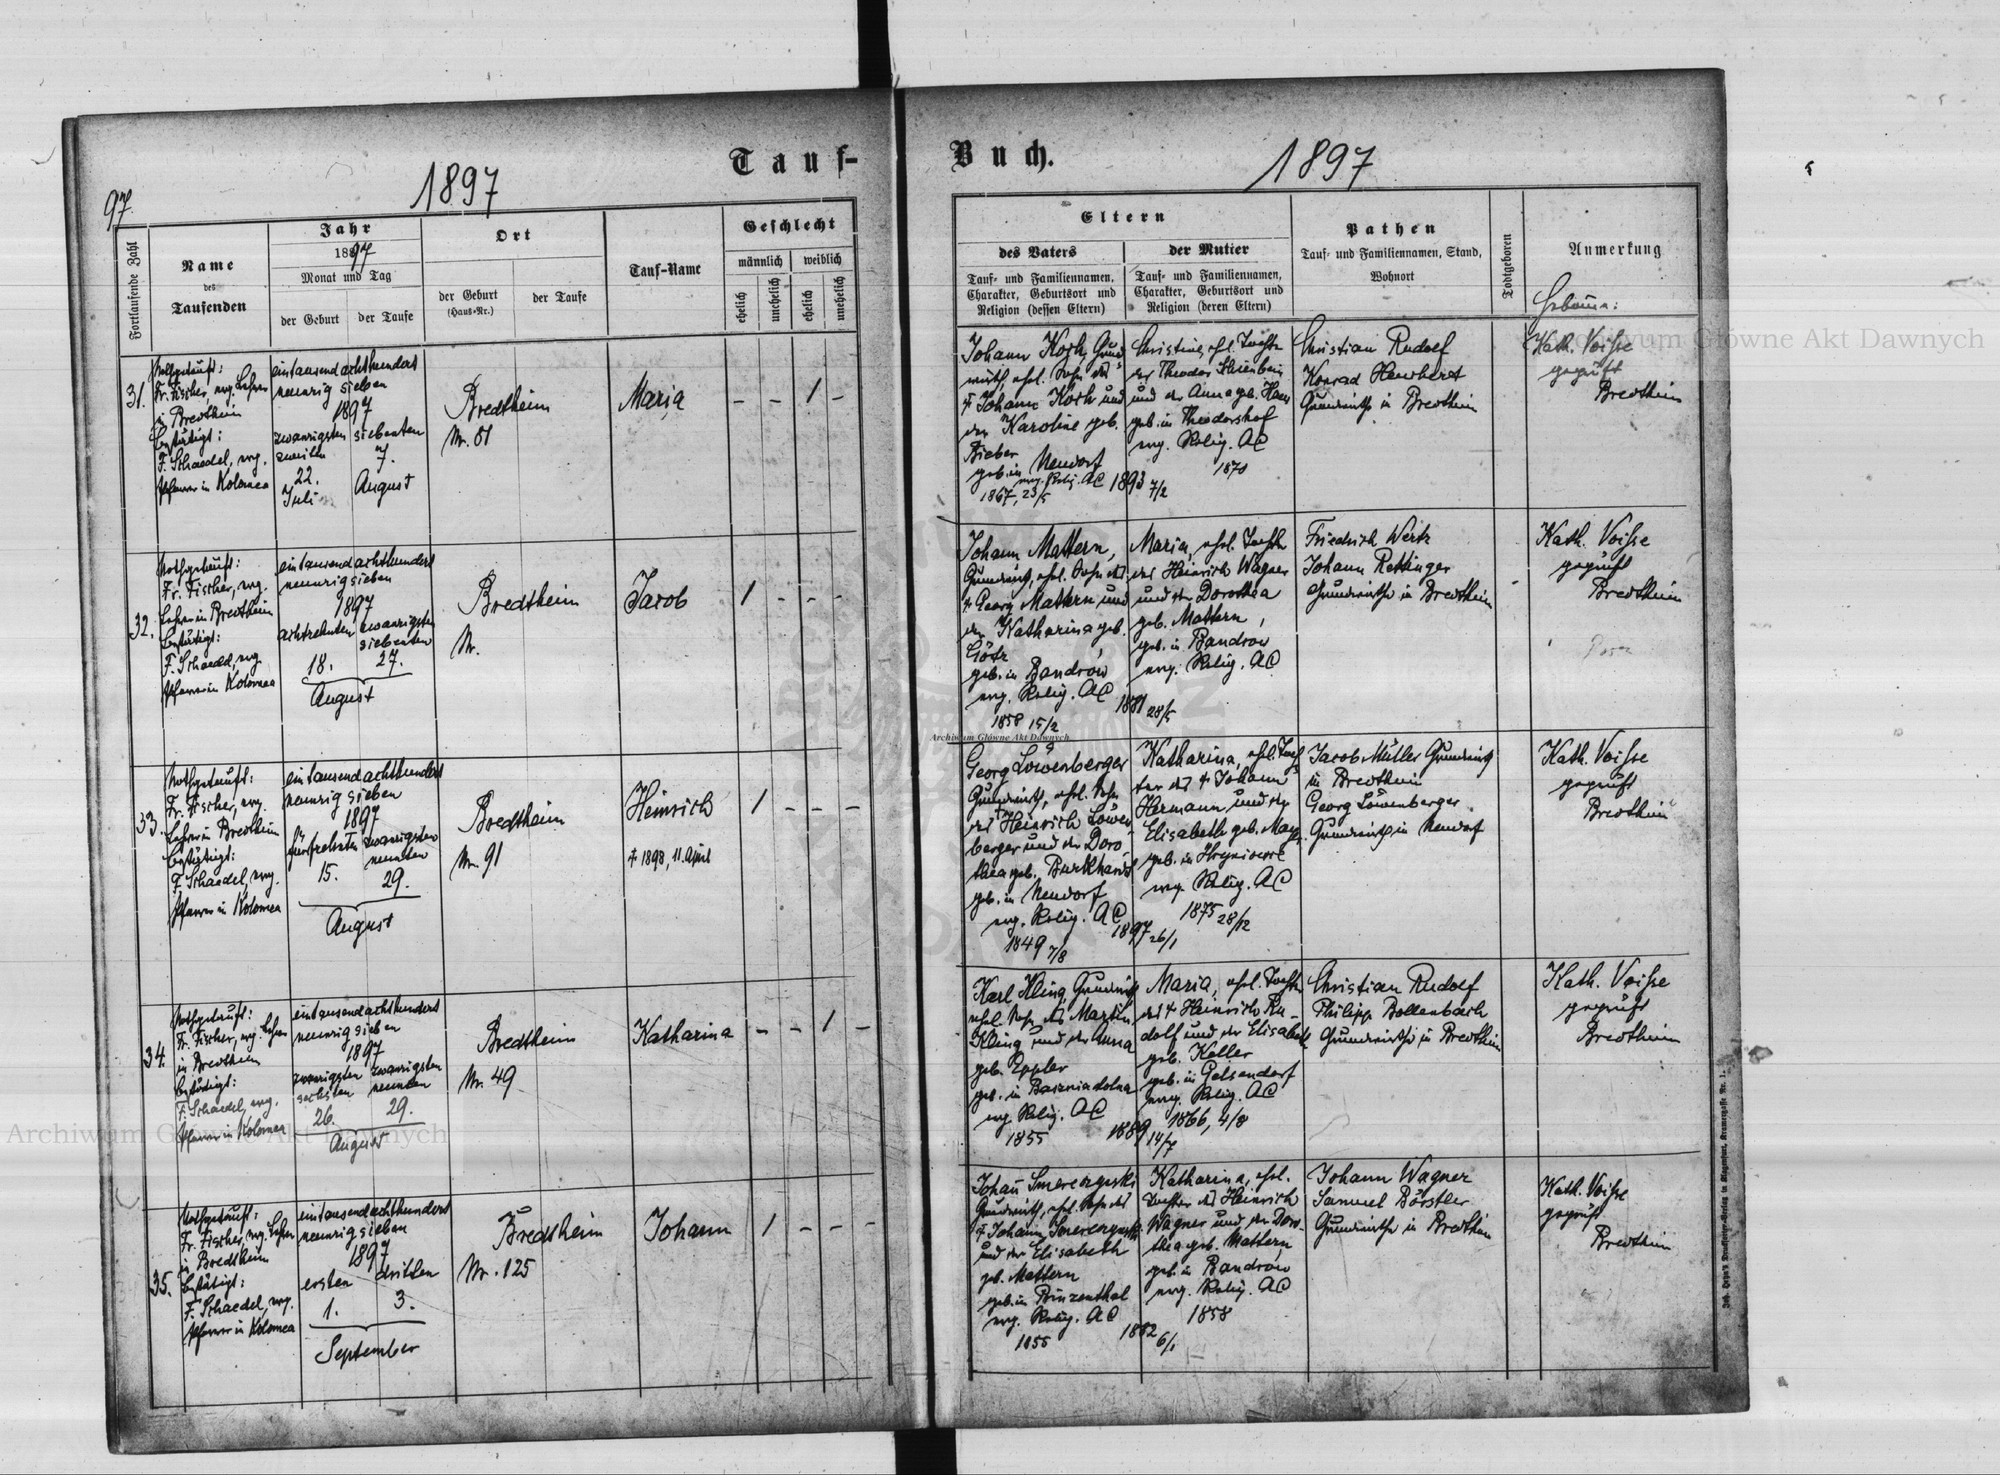 Tauf-
Buch.
1897
1897
97.
Fortlaufende Zahl
Name
des
Taufenden
Jahr
1897
Monat und Tag
der Geburt
der Taufe
Ort
der Geburt
(Haus-Nr.)
der Taufe
Tauf-Name
Geschlecht
männlich
weiblich
ehelich
unehelich
ehelich
unehelich
Eltern
des Vaters
Tauf- und Familiennamen,
Charakter, Geburtsort und
Religion (dessen Eltern)
der Mutter
Tauf- und Familiennamen,
Charakter, Geburtsort und
Religion (deren Eltern)
Pathen
Tauf- und Familiennamen, Stand,
Wohnort
Todtgeboren
Anmerkung
31.
Nothgetauft:
Fr. Fischer, evg. Lehrer
in Bredtheim
bestätigt:
F. Schaedel, evg.
Pfarrer in Kolomea
eintausendachthundert
neunzig sieben
1897
zwanzigsten siebenten
zweiten 7.
22.
Juli August
Bredtheim
Nr. 81
Maria
- - 1 -
Johann Koch, Grund
wirth, ehl. Sohn des
† Johann Koch und
der Karoline geb.
Bieber
geb. in Neudorf
evg. Relig. AC
1867, 23/5
1893 7/2
Christine, ehl. Tochter
des Theodor
und der Anna geb.
geb. in Theodorshof
evg. Relig. AC
Christian Rudolf
Konrad
Grundwirthe in Bredtheim
Hebamme:
Kath. Voisse
geprüft
Bredtheim
32.
Nothgetauft:
Fr. Fischer, evg.
Lehrer in Bredtheim
bestätigt:
F. Schaedel, evg.
Pfarrer in Kolomea
eintausendachthundert
neunzig sieben
1897
achtzehnten zwanzigsten
siebenten
18. 27.
August
Bredtheim
Nr.
Jacob
1 - - -
Johann Mattern,
Grundwirth, ehl. Sohn des
† Georg Mattern und
der Katharina geb.
Götz
geb. in Bandrów
evg. Relig. AC
1858 15/2
1881 28/5
Maria, ehl. Tochter
des Heinrich Wagner
und der Dorothea
geb. Mattern,
geb. in Bandrow
evg. Relig. AC
Friedrich Wertz
Johann Rettinger
Grundwirthe in Bredtheim
Kath. Voisse
geprüft
Bredtheim
33.
Nothgetauft:
Fr. Fischer, evg.
Lehrer in Bredtheim
bestätigt:
F. Schaedel, evg.
Pfarrer in Kolomea
eintausendachthundert
neunzig sieben
1897
fünfzehnten zwanzigsten
neunten
15. 29.
August
Bredtheim
Nr. 91
Heinrich
† 1898, 11. April
1 - - -
Georg Löwenberger
Grundwirth, ehl. Sohn
des † Heinrich Löwen
berger und der Doro
thea geb. Burkhardt
geb. in Neudorf
evg. Relig. AC
1849 7/8
1897 26/1
Katharina, ehl. Toch
ter des † Johann
Hermann und der
Elisabeth geb.
geb. in
evg. Relig. AC
1875 28/12
Jacob Müller Grundwirth
in Bredtheim
Georg Löwenberger
Grundwirth in Neudorf
Kath. Voisse
geprüft
Bredtheim
34.
Nothgetauft:
Fr. Fischer, evg. Lehrer
in Bredtheim
bestätigt:
F. Schaedel, evg.
Pfarrer in Kolomea
eintausendachthundert
neunzig sieben
1897
zwanzigsten zwanzigsten
sechsten neunten
26. 29.
August
Bredtheim
Nr. 49
Katharina
- - 1 -
Karl Kling, Grundwirth
ehl. Sohn des Martin
Kling und der Anna
geb. Eppler
geb. in Basznia dolna
evg. Relig. AC
1855
1889 14/7
Maria, ehl. Tochter
des † Heinrich Ru-
dolf und der Elisabeth
geb. Keller
geb. in Gelsendorf
evg. Relig. AC
1866, 4/8
Christian Rudolf
Philipp Bollenbach
Grundwirthe in Bredtheim
Kath. Voisse
geprüft
Bredtheim
35.
Nothgetauft:
Fr. Fischer, evg. Lehrer
in Bredtheim
bestätigt:
F. Schaedel, evg.
Pfarrer in Kolomea
eintausendachthundert
neunzig sieben
1897
ersten dritten
1. 3.
September
Bredtheim
Nr. 125
Johann
1 - - -
Johañ Smereczynski
Grundwirth, ehl. Sohn des
† Johann Smereczynski
und der Elisabeth
geb. Mattern
geb. in Prinzenthal
evg. Relig. AC
1855
1882 6/1
Katharina, ehl.
Tochter des Heinrich
Wagner und der Doro-
thea geb. Mattern
geb. in Bandrów
evg. Relig. AC
1858
Johann Wagner
Samuel Börstler
Grundwirthe in Bredtheim
Kath. Voisse
geprüft
Bredtheim
Archiwum Główne Akt Dawnych
Archiwum Główne Akt Dawnych
Archiwum Główne Akt Dawnych